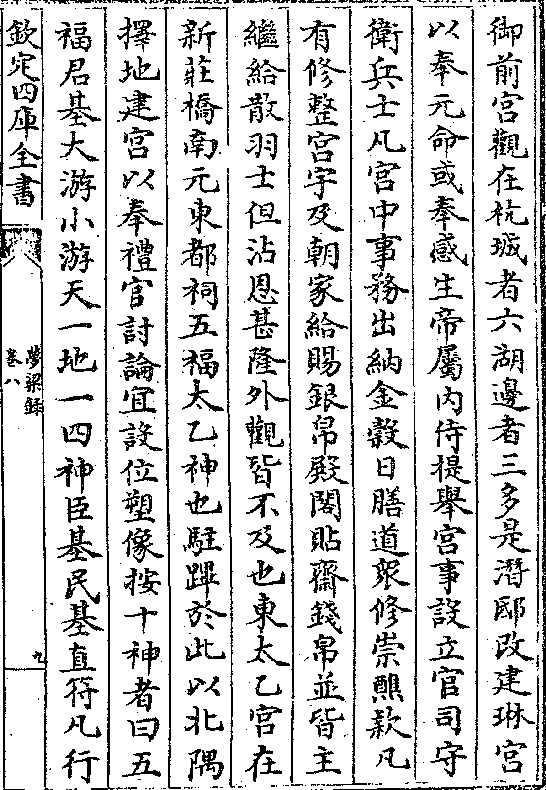 御前宫觀在杭城者六湖邊者三多是潛邸改建琳宫
以奉元命或奉感生帝屬内侍提舉宫事設立官司守
衛兵士凡宫中事務出納金穀日膳道衆修崇醮款凡
有修整宫宇及朝家給賜銀帛殿閣貼齋錢帛並皆主
繼給散羽士但沾恩甚隆外觀皆不及也東太乙宫在
新莊橋南元東都祠五福太乙神也駐蹕於此以北隅
擇地建宫以奉禮官討論宜設位塑像按十神者曰五
福君基大游小游天一地一四神臣基民基直符凡行
欽定四庫全書
夢粱録
卷八
九